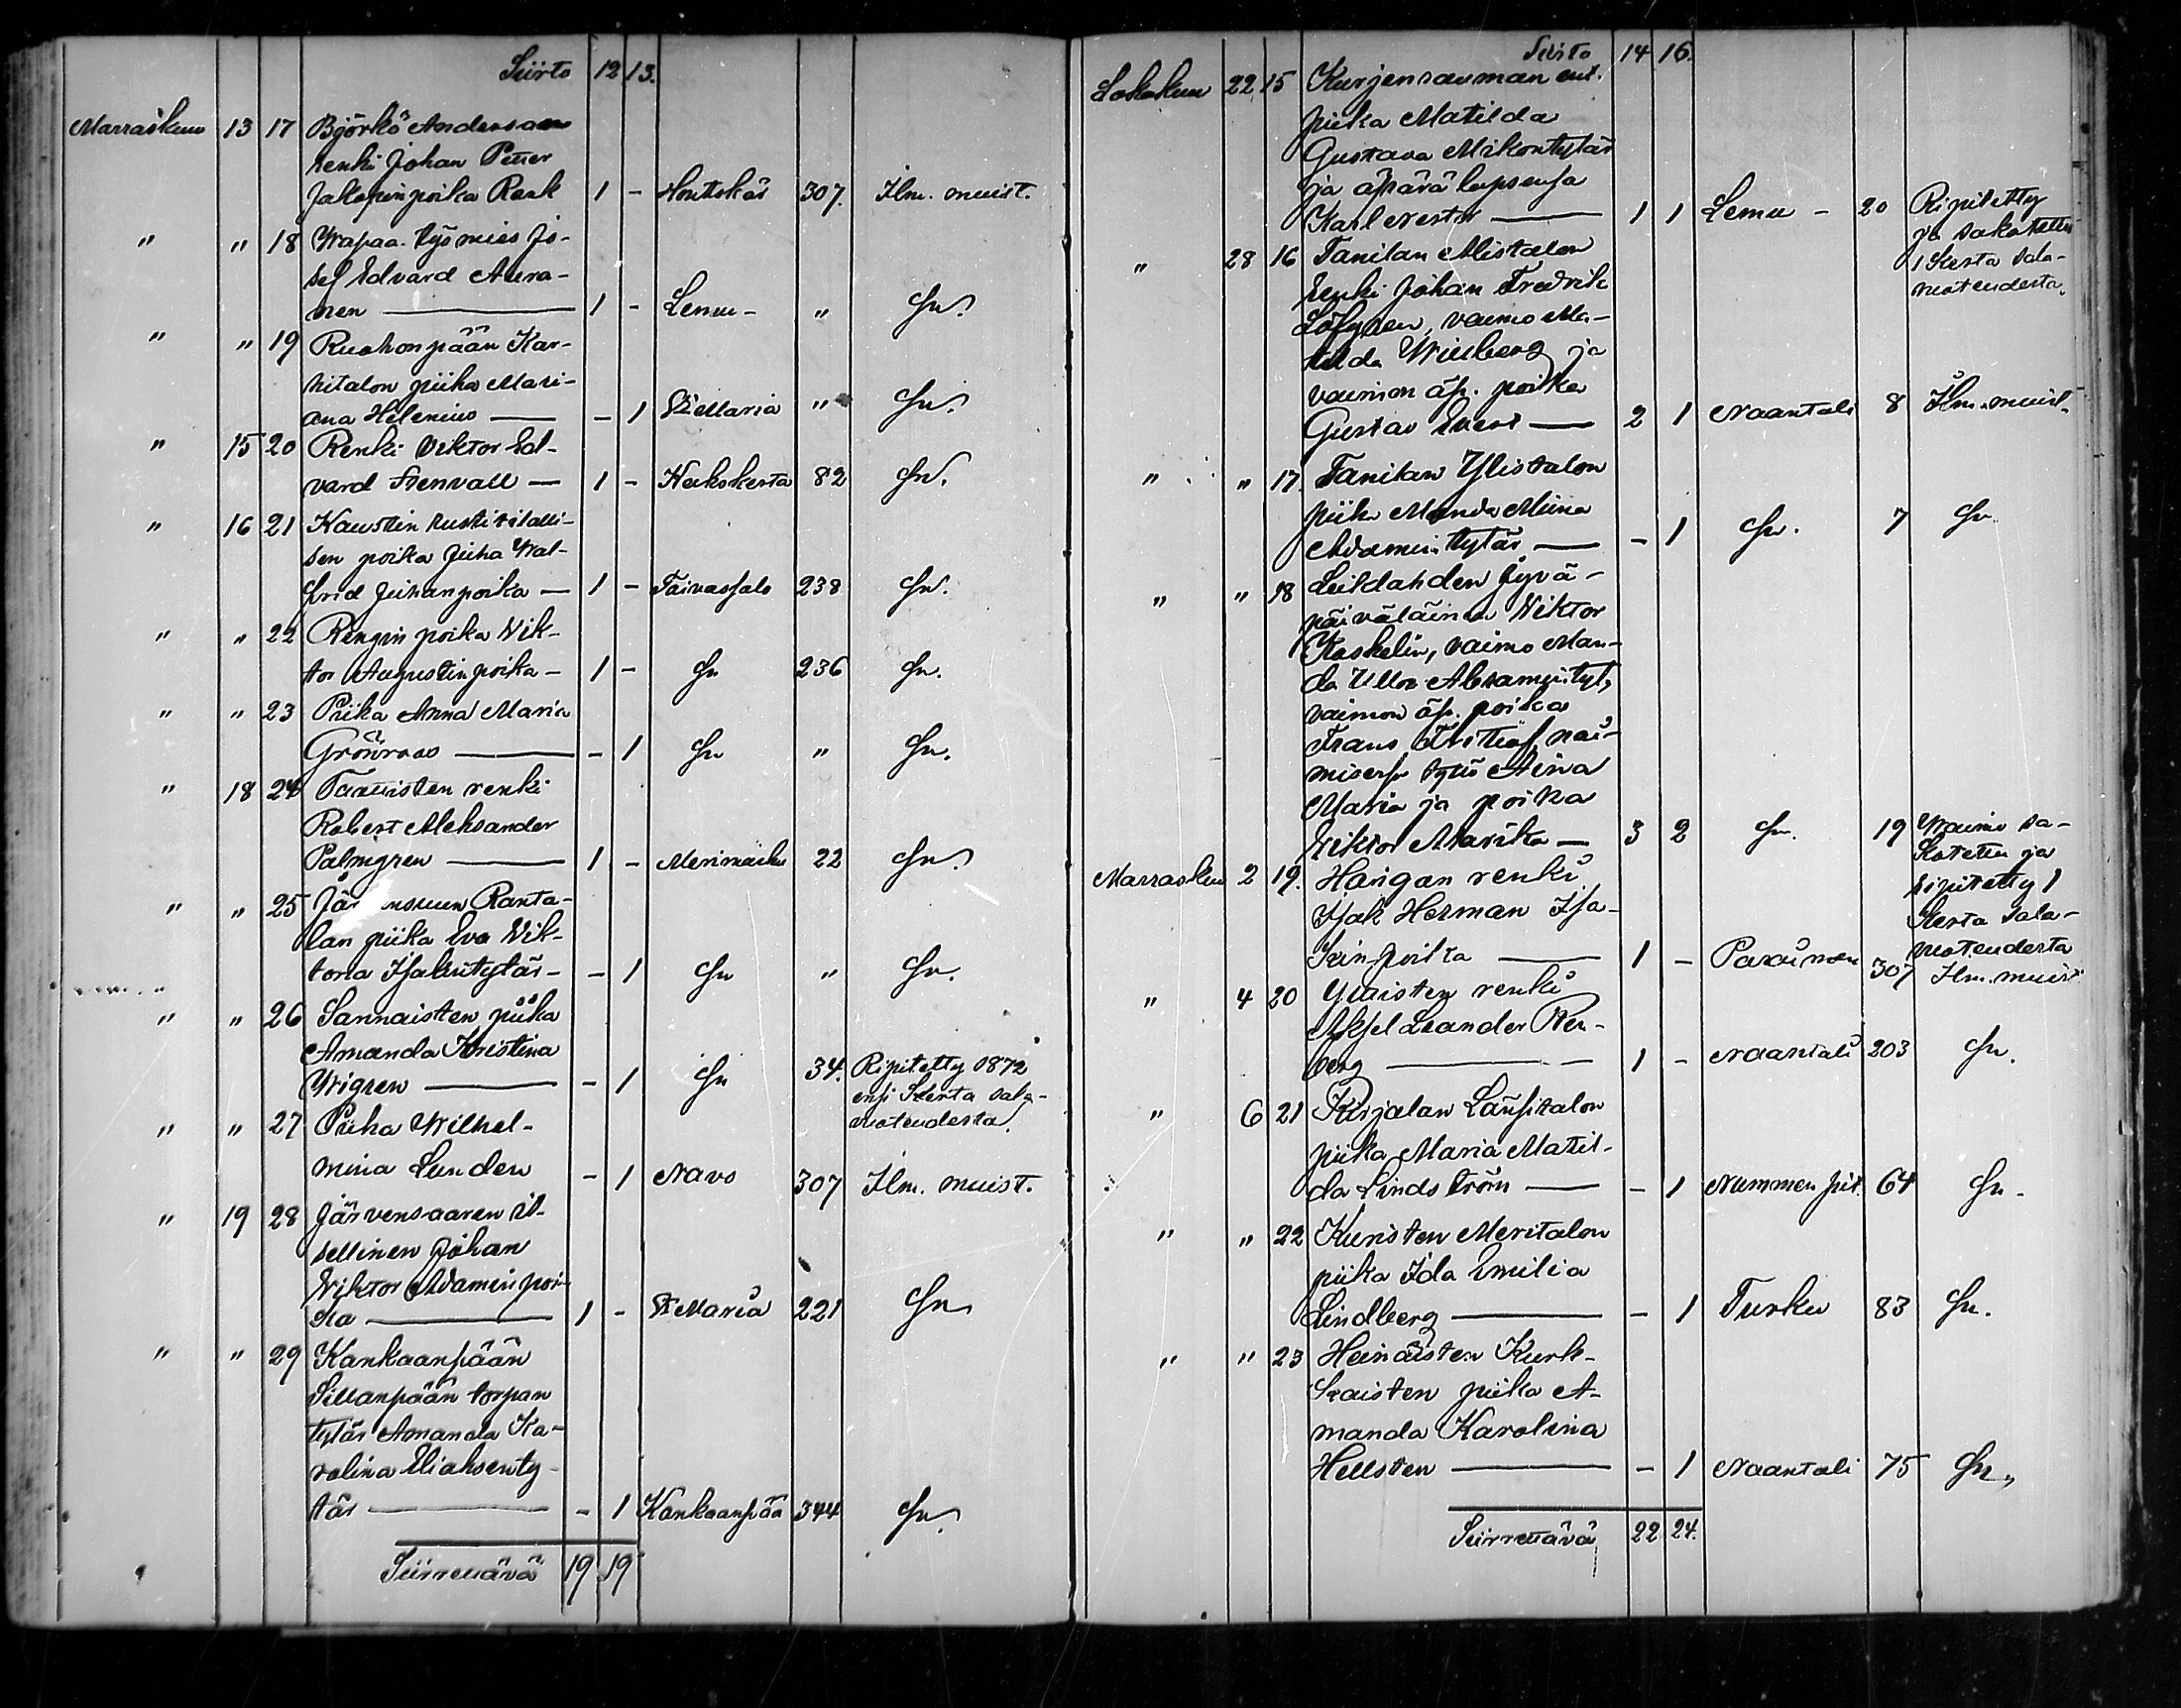 Siirto 12 13.
Marraskuu 13 17 Björkö Andersson
renki Johan Petter
Jakopinpoika Rask 1 - Houtskär 307. Ilm. muist.
" " 18 Wapaa työmies Jo-
sef Edvard Aura-
nen — 1 - Lemu - " Sn.
" " 19 Ruohonpään Kar-
vitalon piika Mari-
ana Helenius — - 1 St Maria " Sn.
" 15 20 Renki Viktor Ed-
vard Stenvall — 1 - Kakskerta 82 Sn.
" 16 21 Kaustin rustitilalli-
sen poika Juha Wal-
frid Juhanpoika — 1 - Taivassalo 238 Sn.
" " 22 Rengin poika Wik-
tor Augustinpoika - 1 - Sn 236 Sn.
" " 23 Piika Anna Maria
Grönroos — - 1 Sn " Sn.
" 18 24 Tammisten renki
Robert Aleksander
Palmgren — 1 - Merimasku 22 Sn.
" " 25 Jär nsuun Ranta-
lan piika Eva Wik-
toria Isakintytär - - 1 Sn " Sn.
" " 26 Sannaisten piika
Amanda Kristina
Wigren — - 1 Sn 34. Ripitetty 1872
ensi kerta sala-
vuoteudesta.
" " 27 Piika Wilhel-
mina Lunden - 1 Navo 307 Ilm. muist.
" 19 28 Järvensaaren it-
sellinen Johan
Wiktor Adamin poi-
ka — 1 - St Maria 221 Sn
" " 29 Kankaanpään
Sillanpään torpan
tytär Amanda Ka-
rolina Eliaksenty-
tär — - 1 Kankaanpää 344 Sn.
Siirrettävä 19 19
Siirto 14 16.
Lokakuu 22 15 Kurjenrauman ent.
piika Matilda
Gustava Mikontytär
ja äpärä lapsensa
Karl Nestor — 1 1 Lemu - 20 Ripitetty
ja sakotettu
1 kerta sala-
vuoteudesta.
" 28 16 Tanilan Alistalon
renki Johan Fredrik
Löfgren, vaimo Ma-
tilda Wiulberg ja
vaimon äp. poika
Gustav Evert — 2 1 Naantali 8 Ilm. muist.
" " 17. Tanilan Ylistalon
piika Manda Miina
Adamintytär — - 1 Sn. 7 Sn.
" " 18 Luikkahden Jyvä-
päiväläinen Wiktor
Koskelin, vaimo Man-
da Ulla Abramintyt,
vaimon äp. poika
Frans Fritiof, nai-
misesta tytär Aina
Maria ja poika
Wiktor Marika — 3 2 Sn. 19 Waimo sa-
kotettu ja
ripitetty 1
kerta sala-
vuoteudesta
Marraskuu 2 19. Harigan renki
Isak Herman Isa-
kinpoika — 1 - Parainen 307 Ilm. muist
" 4 20 Ylaisten renki
Aksel Leander Ren-
berg — 1 - Naantali 203 Sn.
" 6 21 Kirjalan Länsitalon
piika Maria Matil-
da Lindström — - 1 Nummen pit. 64 Sn.
" " 22 Kuristen Meritalon
piika Ida Emilia
Lindberg — - 1 Turku 83 Sn.
" " 23 Heinäisten Kurk-
kaisten piika A-
manda Karolina
Hellsten — - 1 Naantali 75 Sn.
Siirrettävä 22 24.